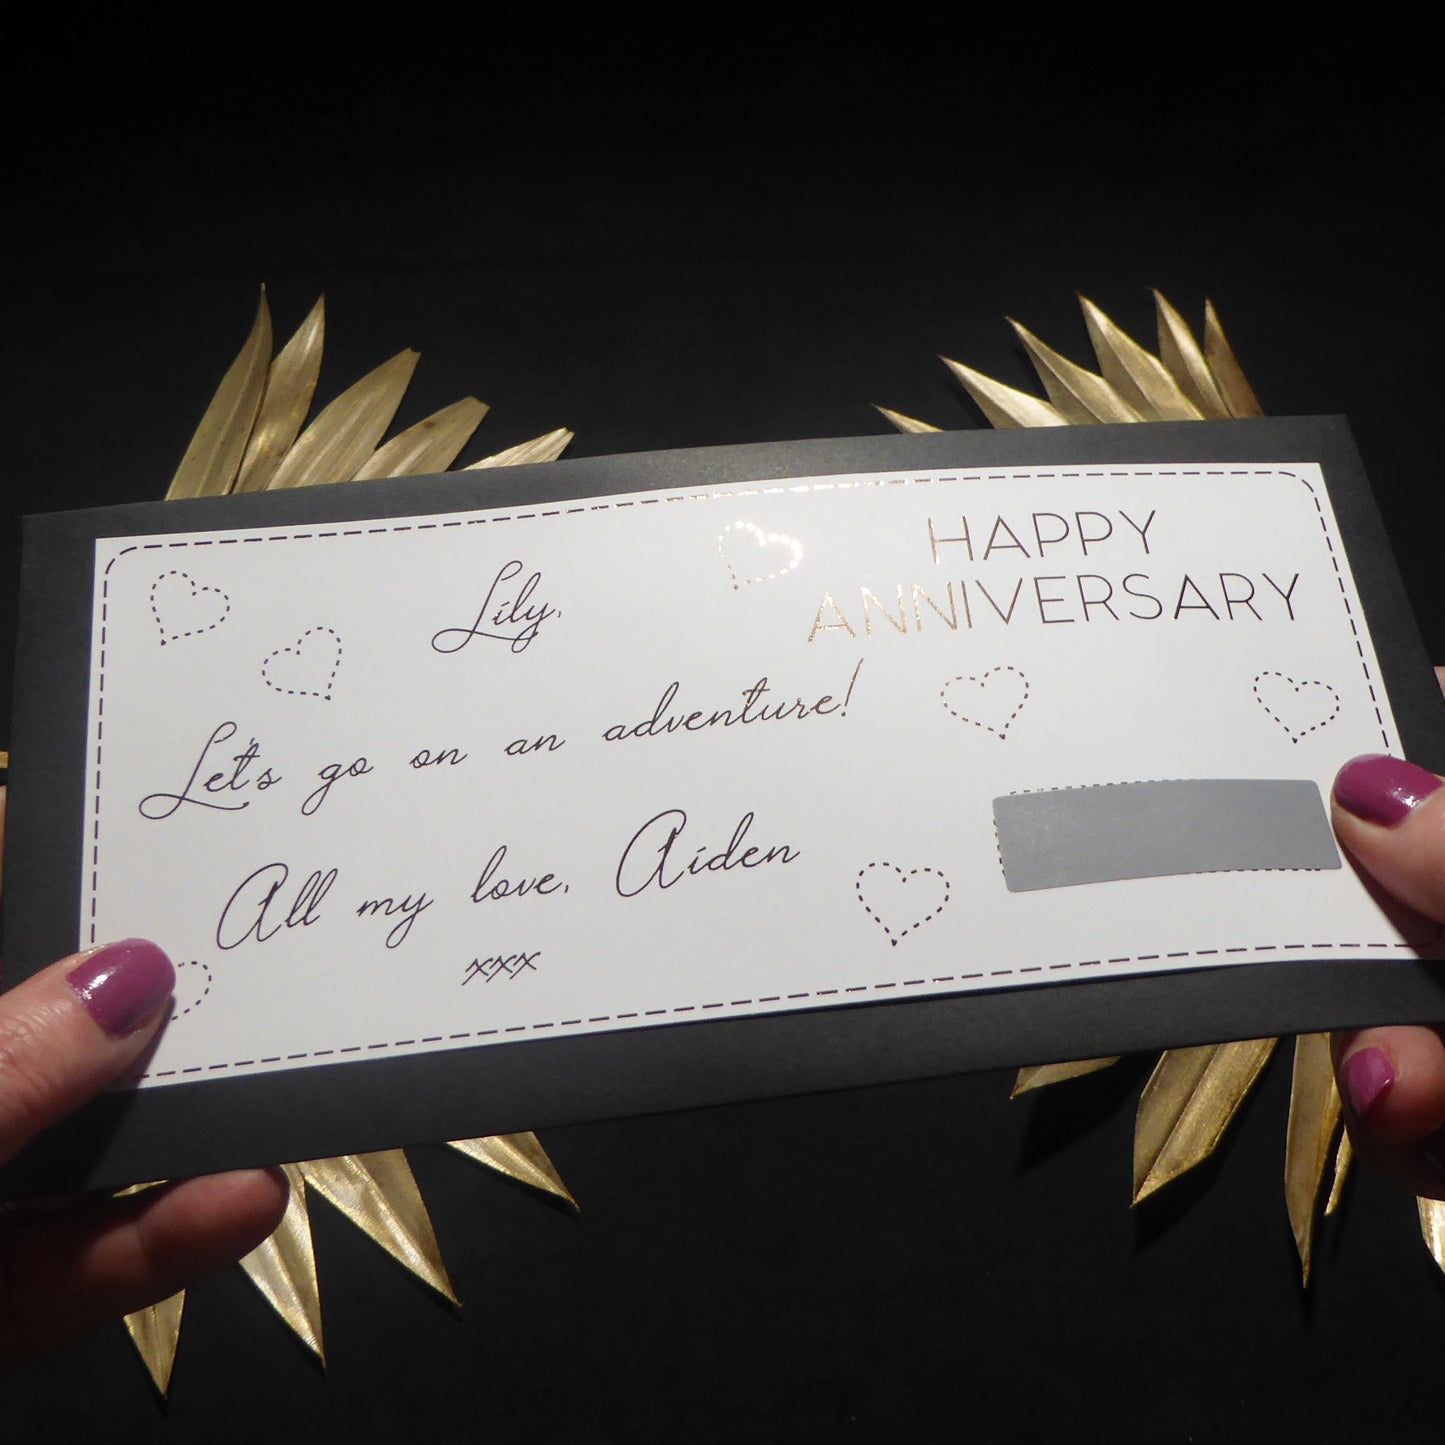 Lily,
HAPPY
ANNIVERSARY
Let's go on an adventure!
All my love, Aiden
xxx